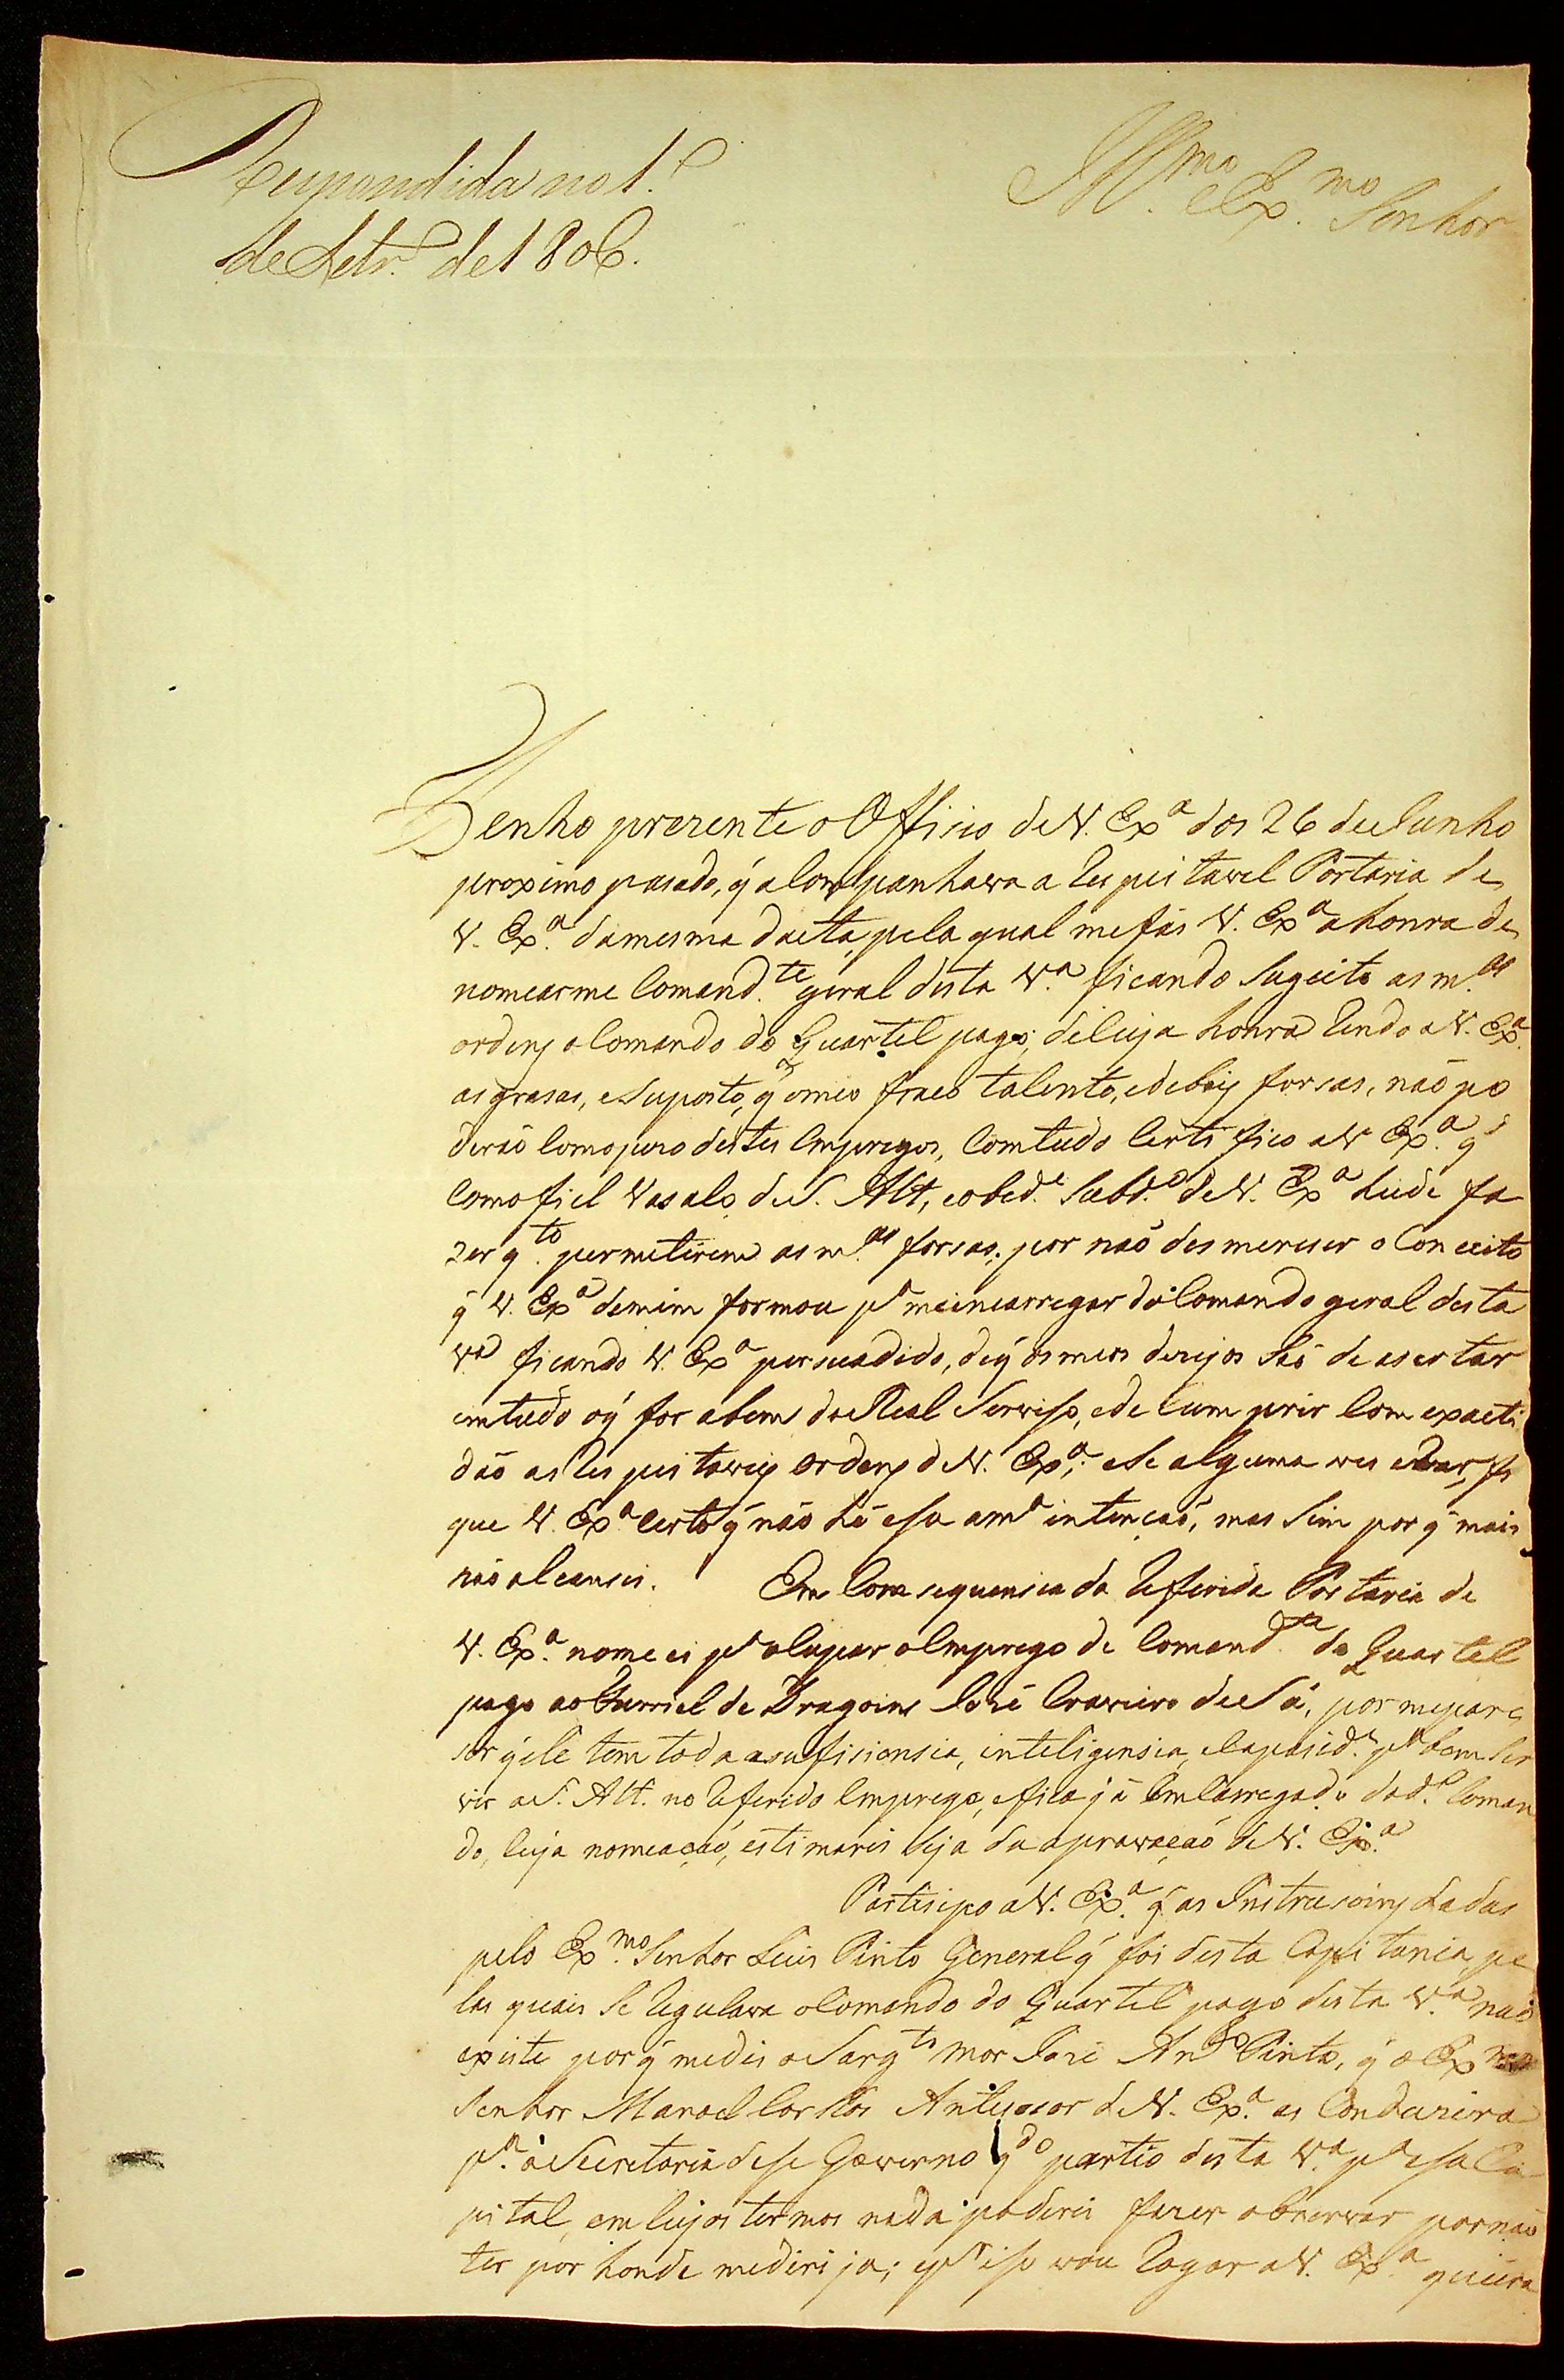 Respondida no 1.º
de Setr.º de 1806.
Ill.mo e Ex.mo Senhor
Tenho prezente o Officio de V. Ex.a dos 26 de Junho
proximo pasado, q̃ acompanhava a Respeitavel Portaria de
V. Ex.a da mesma dacta, pela qual me fás V. Ex.a a honra de
nomearme Comand.te geral desta V.a ficando Sugeito as m.as
ordens o Comando do Quartel pago; de cuja honra Rendo a V. Ex.a
as grasas, e Suposto, q̃ o meo fraco talento, e debeis forsas, não po
derão com o pezo destes Empregos, Comtudo Certifico a V. Ex.a q̃
Como fiel Vasalo de S. Alt, e obed.e Subd.o de V. Ex.a heide fa
zer q.to permetirem as m.as forsas; por não desmereser o Conceito
q̃ V. Ex.a de mim formou p.a me incarregar do Comando geral desta
V.a ficando V. Ex.a persuadido, de q̃ os meos dezejos São de asertar
em tudo o q̃ for a bem do Real Serviso, e de cumprir Com exacti
dão as Respeitaveis ordens de V. Ex.a; e Se alguma ves errar, fi
que V. Ex.a Certo q̃ não hé esa a m.a intenção, mas Sim por q̃ mais
não alcansei. Em Consequensia da Referida Portaria de
V. Ex.a nomeei p.a ocupar o Emprego de Comand.te do Quartel
pago ao Furriel de Dragoins José Craveiro de Sá, por me pare
ser q̃ ele tem toda a sufisiensia, inteligensia, e capasid.e p.a bem Ser
vir a S. Alt. no Referido Emprego, e fica já Emcarregado do d.o Coman
do, cuja nomeação, estimarei Seja da aprovação de V. Ex.a
Partisipo a V. Ex.a q̃ as Instrusoins dadas
pelo Ex.mo Senhor Luis Pinto General q̃ foi desta Capitania pe
las quais Se Regulava o Comando do Quartel pago desta V.a não
existe por q̃ me dis o Sarg.to mor José An.to Pinto, q̃ o Ex.mo
Senhor Manoel Carlos Antesesor de V. Ex.a as Conduzira
p.a a Secretaria dese Governo q.do partio desta V.a p.a esa Ca
pital, em cujos termos nada poderei fazer observar por não
ter por honde me dirija; e p.r iso vou Rogar a V. Ex.a queira